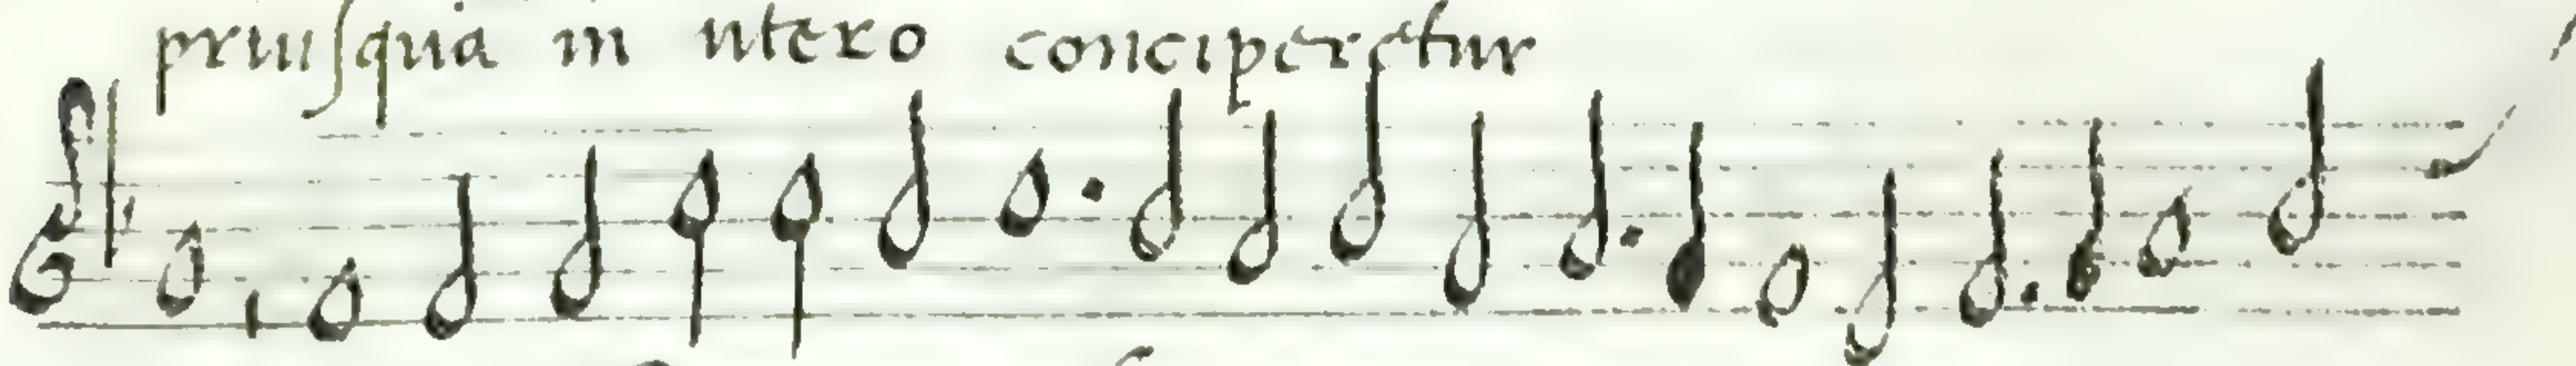 priuſquã in utero conciperetur